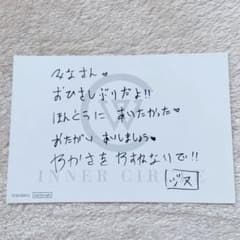 みなさん♥
おひさしぶりだよ!!
ほんとうに あいたかった♥
おたがい あいしましょう♥
わかさを わすれないで!!
ジス
INNER CIRCLE